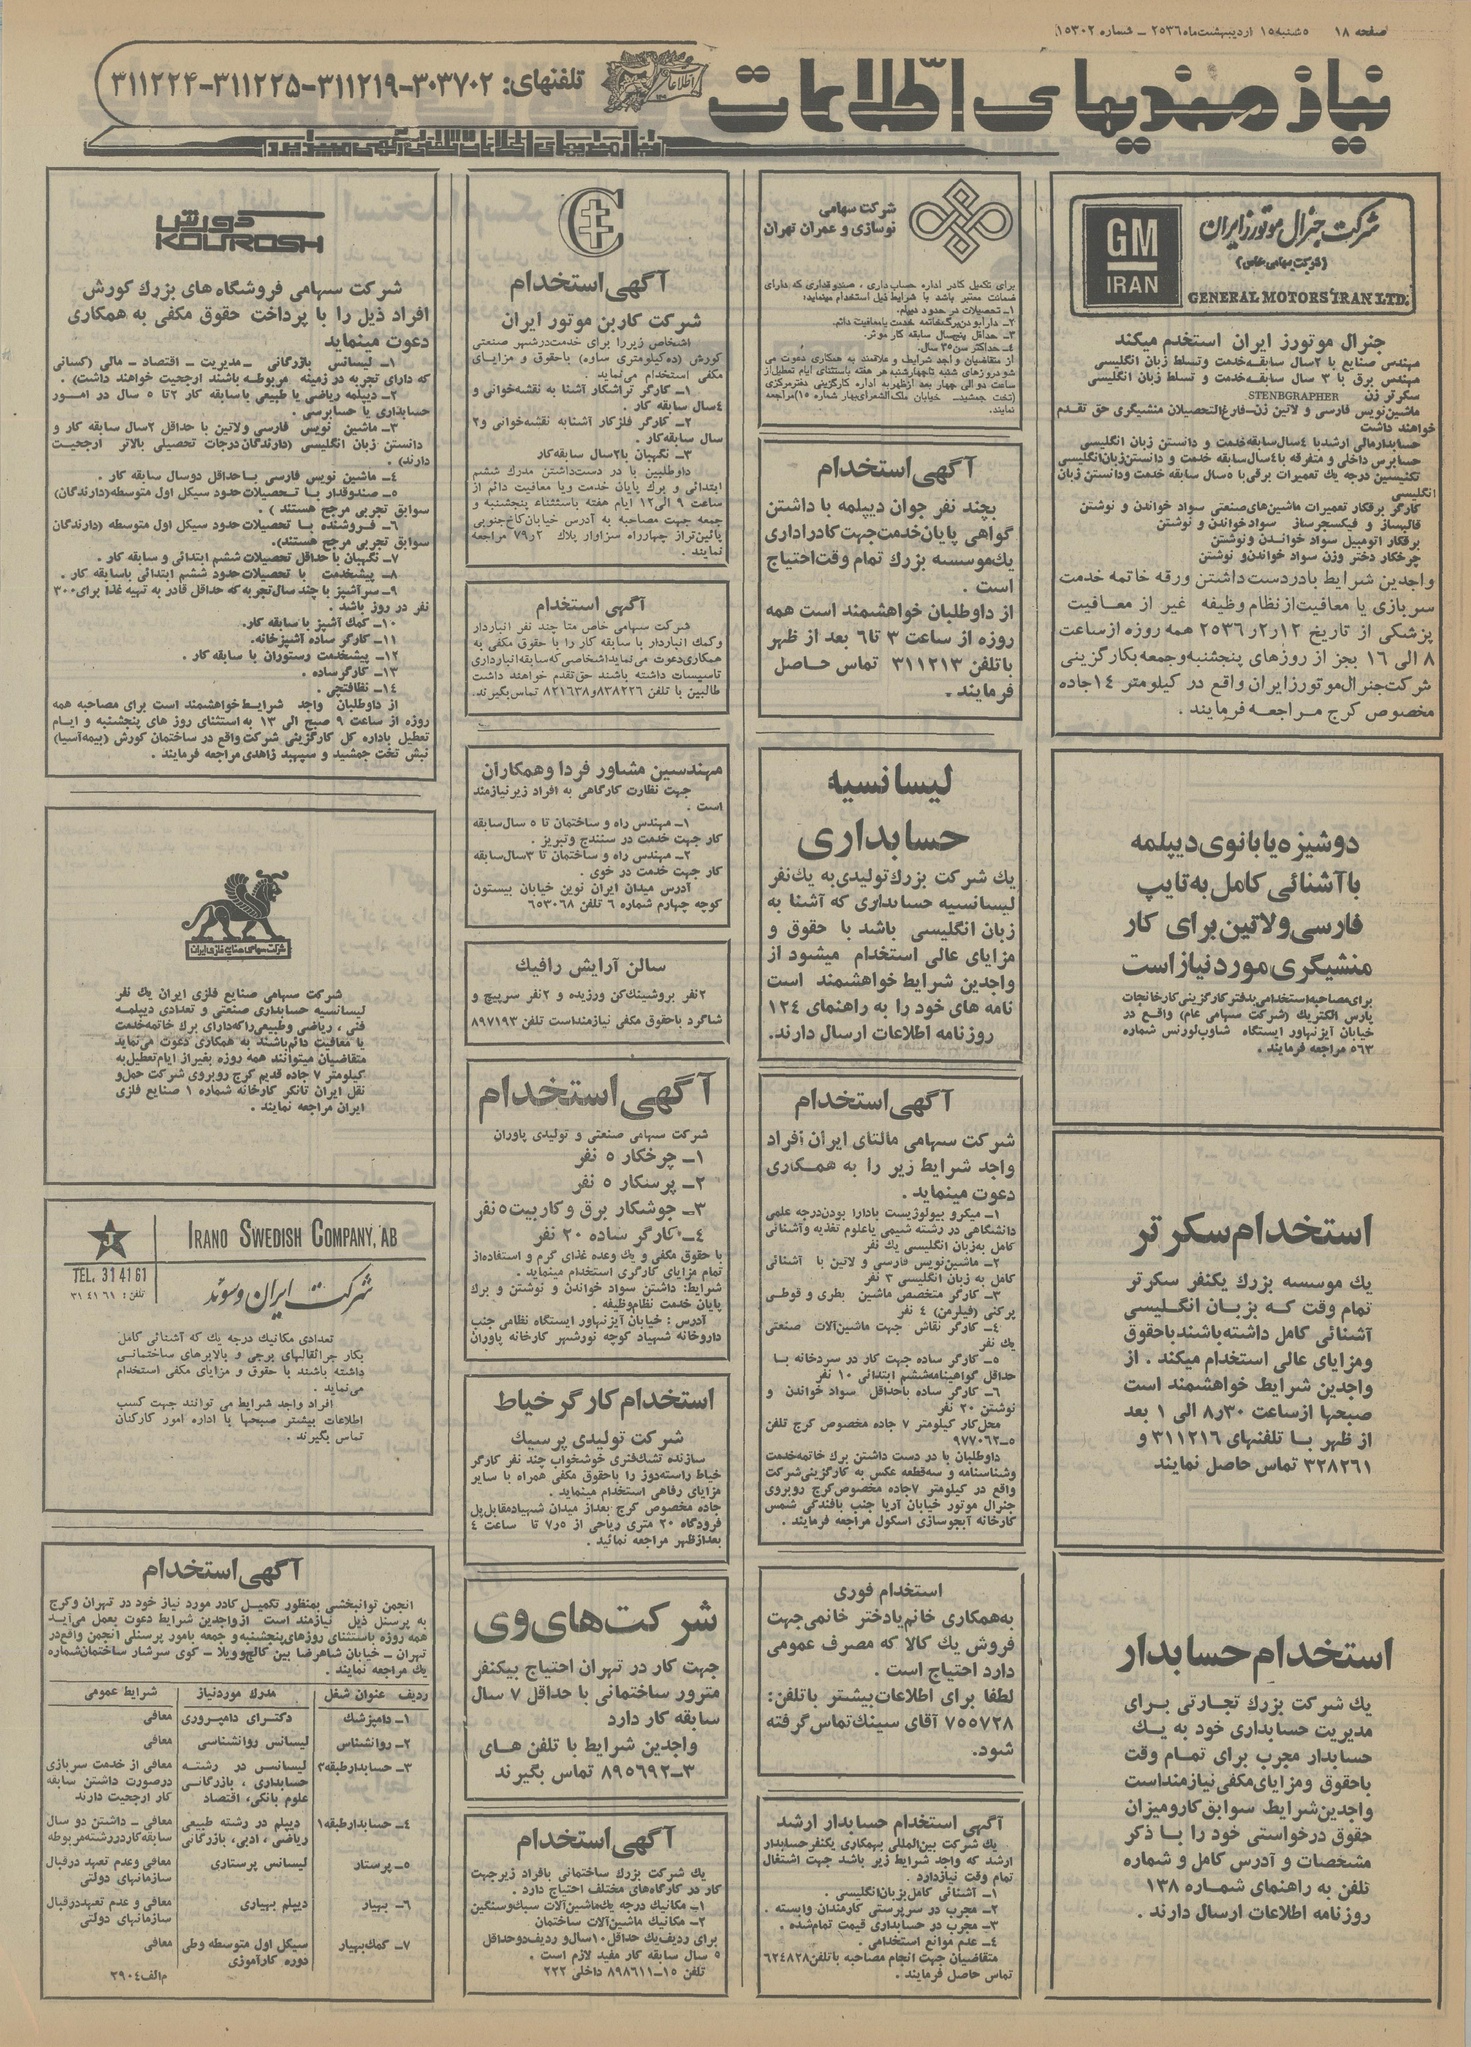 صفحه ۱۸
۵شنبه ۱۵ اردیبهشت ماه ۲۵۳۶ - شماره ۱۵۳۰۲
نیازمندیهای اطلاعات
تلفنهای: ۳۰۳۷۰۲-۳۱۱۲۱۹-۳۱۱۲۲۵-۳۱۱۲۲۴
نیازمندیهای اطلاعات تلفنی آگهی میپذیرد
شرکت جنرال موتورز ایران
(شرکت سهامی خاص)
GM
IRAN
GENERAL MOTORS IRAN LTD.
جنرال موتورز ایران استخدم میکند
مهندس صنایع با ۲ سال سابقه خدمت وتسلط زبان انگلیسی
مهندس برق با ۳ سال سابقه خدمت و تسلط زبان انگلیسی
سکرتر زن STENBGRAPHER
ماشین نویس فارسی و لاتین زن-فارغ التحصیلان منشیگری حق تقدم
خواهند داشت
حسابدارمالی ارشدبا ٤ سال سابقه خدمت و دانستن زبان انگلیسی
حسابرس داخلی و متفرقه با ٤ سال سابقه خدمت و دانستن زبان انگلیسی
تکنیسین درجه یك تعمیرات برقی با ٥ سال سابقه خدمت ودانستن زبان
انگلیسی
کارگر برقکار تعمیرات ماشین های صنعتی سواد خواندن و نوشتن
قالبساز و فیکسچرساز سواد خواندن و نوشتن
برقکار اتومبیل سواد خواندن ونوشتن
چرخکار دختر وزن سواد خواندن و نوشتن
واجدین شرایط بادردست داشتن ورقه خاتمه خدمت
سربازی یا معافیت از نظام وظیفه غیر از معافیت
پزشکی از تاریخ ۲۵۳٦/۲/۱۲ همه روزه از ساعت
۸ الی ۱٦ بجز از روزهای پنجشنبه وجمعه بکارگزینی
شرکت جنرال موتورز ایران واقع در کیلومتر ۱٤ جاده
مخصوص کرج مراجعه فرمایند .
دوشیزه یا بانوی دیپلمه
با آشنائی کامل به تایپ
فارسی ولاتین برای کار
منشیگری مورد نیاز است
برای مصاحبه استخدامی بدفتر کارگزینی کارخانجات
پارس الکتریك (شرکت سهامی عام) واقع در
خیابان آیزنهاور ایستگاه شاوب لورنس شماره
۵٦۳ مراجعه فرمایند .
استخدام سکرتر
یك موسسه بزرك یکنفر سکرتر
تمام وقت که بزبان انگلیسی
آشنائی کامل داشته باشند باحقوق
ومزایای عالی استخدام میکند . از
واجدین شرایط خواهشمند است
صبحها از ساعت ۸ر۳۰ الی ۱ بعد
از ظهر با تلفنهای ۳۱۱۲۱٦ و
۳۲۸۲٦۱ تماس حاصل نمایند
استخدام حسابدار
یك شرکت بزرك تجارتی برای
مدیریت حسابداری خود به یك
حسابدار مجرب برای تمام وقت
باحقوق ومزایای مکفی نیازمند است
واجدین شرایط سوابق کارومیزان
حقوق درخواستی خود را با ذکر
مشخصات و آدرس کامل و شماره
تلفن به راهنمای شماره ۱۳۸
روزنامه اطلاعات ارسال دارند .
شرکت سهامی
نوسازی و عمران تهران
برای تکمیل کادر اداره حسابداری ، صندوقداری که دارای
ضمانت معتبر باشد با شرایط ذیل استخدام مینماید:
۱- تحصیلات در حدود دیپلم.
۲- دارا بودن برگ خاتمه خدمت یا معافیت دائم.
۳- حداقل پنج سال سابقه کار موثر.
٤- حداکثر سن ۳۵ سال.
از متقاضیان و اجد شرایط و علاقمند به همکاری دعوت می
شود روزهای شنبه تا چهارشنبه هر هفته باستثنای ایام تعطیل از
ساعت دو الی چهار بعد از ظهر به اداره کارگزینی دفترمرکزی
(تخت جمشید- خیابان ملك الشعرای بهار شماره ۱۵) مراجعه
نمایند.
آگهی استخدام
بچند نفر جوان دیپلمه با داشتن
گواهی پایان خدمت جهت کادر اداری
یك موسسه بزرك تمام وقت احتیاج
است .
از داوطلبان خواهشمند است همه
روزه از ساعت ۳ تا ٦ بعد از ظهر
با تلفن ۳۱۱۲۱۳ تماس حاصل
فرمایند .
لیسانسیه
حسابداری
یك شرکت بزرك تولیدی به یك نفر
لیسانسیه حسابداری که آشنا به
زبان انگلیسی باشد با حقوق و
مزایای عالی استخدام میشود از
واجدین شرایط خواهشمند است
نامه های خود را به راهنمای ۱۲٤
روزنامه اطلاعات ارسال دارند.
آگهی استخدام
شرکت سهامی مالتای ایران افراد
واجد شرایط زیر را به همکاری
دعوت مینماید .
۱- میکرو بیولوژیست بادارا بودن درجه علمی
دانشگاهی در رشته شیمی یا علوم تغذیه و آشنائی
کامل به زبان انگلیسی یك نفر
۲- ماشین نویس فارسی و لاتین با آشنائی
کامل به زبان انگلیسی ۳ نفر
۳- کارگر متخصص ماشین بطری و قوطی
پرکنی (فیلرمن) ٤ نفر
٤- کارگر نقاش جهت ماشین آلات صنعتی
یك نفر
۵- کارگر ساده جهت کار در سردخانه با
حداقل گواهینامه ششم ابتدائی ۱۰ نفر
٦- کارگر ساده با حداقل سواد خواندن و
نوشتن ۲۰ نفر
محل کار کیلومتر ۷ جاده مخصوص کرج تلفن
۵-۹۷۷۰٦۲
داوطلبان با در دست داشتن برك خاتمه خدمت
وشناسنامه و سه قطعه عکس به کارگزینی شرکت
واقع در کیلومتر ۷ جاده مخصوص کرج روبروی
جنرال موتور خیابان آریا جنب بافندگی شمس
کارخانه آبجوسازی اسکول مراجعه فرمایند .
استخدام فوری
به همکاری خانم یا دختر خانمی جهت
فروش یك کالا که مصرف عمومی
دارد احتیاج است .
لطفا برای اطلاعات بیشتر با تلفن:
۷۵۵۷۲۸ آقای سینك تماس گرفته
شود.
آگهی استخدام حسابدار ارشد
یك شرکت بین المللی بهمکاری یکنفر حسابدار
ارشد که واجد شرایط زیر باشد جهت اشتغال
تمام وقت نیازدارد .
۱- آشنائی کامل بزبان انگلیسی .
۲- مجرب در سرپرستی کارمندان وابسته .
۳- مجرب در حسابداری قیمت تمام شده .
٤- عدم موانع استخدامی .
متقاضیان جهت انجام مصاحبه با تلفن ٦۲٤۸۲۸
تماس حاصل فرمایند .
آگهی استخدام
شرکت کاربن موتور ایران
اشخاص زیر را برای خدمت در شهر صنعتی
کورش (ده کیلومتری ساوه) با حقوق و مزایای
مکفی استخدام می نماید .
۱- کارگر تراشکار آشنا به نقشه خوانی و
٤ سال سابقه کار .
۲- کارگر فلزکار آشنا به نقشه خوانی و ۲
سال سابقه کار.
۳- نگهبان با ۲ سال سابقه کار
داوطلبین با در دست داشتن مدرك ششم
ابتدائی و برك پایان خدمت ویا معافیت دائم از
ساعت ۹ الی ۱۲ ایام هفته باستثناء پنجشنبه و
جمعه جهت مصاحبه به آدرس خیابان کاخ جنوبی
پائین تر از چهارراه سزاوار پلاك ۲ر۷۹ مراجعه
نمایند .
آگهی استخدام
شرکت سهامی خاص متا چند نفر انباردار
وکمك انباردار با سابقه کار را با حقوق مکفی به
همکاری دعوت می نماید اشخاصی که سابقه انبارداری
تاسیسات داشته باشند حق تقدم خواهند داشت
طالبین با تلفن ۸۳۸۲۲٦ و ۸۲۱٦۳۸ تماس بگیرند.
مهندسین مشاور فردا و همکاران
جهت نظارت کارگاهی به افراد زیر نیازمند
است .
۱- مهندس راه و ساختمان تا ۵ سال سابقه
کار جهت خدمت در سنندج وتبریز .
۲- مهندس راه و ساختمان تا ۳ سال سابقه
کار جهت خدمت در خوی .
آدرس میدان ایران نوین خیابان بیستون
کوچه چهارم شماره ٦ تلفن ٦۵۳۰٦۸
سالن آرایش رافیك
۲ نفر بروشینك کن ورزیده و ۲ نفر سرپیچ و
شاگرد با حقوق مکفی نیازمند است تلفن ۸۹۷۱۹۳
آگهی استخدام
شرکت سهامی صنعتی و تولیدی پاوران
۱- چرخکار ۵ نفر
۲- پرسکار ۵ نفر
۳- جوشکار برق و کاربیت ۵ نفر
٤- کارگر ساده ۲۰ نفر
با حقوق مکفی و یك وعده غذای گرم و استفاده از
تمام مزایای کارگری استخدام مینماید .
شرایط: داشتن سواد خواندن و نوشتن و برك
پایان خدمت نظام وظیفه .
آدرس : خیابان آیزنهاور ایستگاه نظامی جنب
داروخانه شهیاد کوچه نورشهر کارخانه پاوران
استخدام کارگر خیاط
شرکت تولیدی پرسیك
سازنده تشك فنری خوشخواب چند نفر کارگر
خیاط راسته دوز را باحقوق مکفی همراه با سایر
مزایای رفاهی استخدام مینماید .
جاده مخصوص کرج بعد از میدان شهیاد مقابل پل
فرودگاه ۲۰ متری ریاحی از ۷ر۵ تا ساعت ٤
بعد از ظهر مراجعه نمائید .
شرکت های وی
جهت کار در تهران احتیاج بیکنفر
مترور ساختمانی با حداقل ۷ سال
سابقه کار دارد
واجدین شرایط با تلفن های
۳-۸۹۵٦۹۲ تماس بگیرند
آگهی استخدام
یك شرکت بزرك ساختمانی بافراد زیر جهت
کار در کارگاه های مختلف احتیاج دارد .
۱- مکانیك درجه یك ماشین آلات سبك وسنگین
۲- مکانیك ماشین آلات ساختمان
برای ردیف یك حداقل ۱۰ سال و ردیف دو حداقل
۵ سال سابقه کار مفید لازم است .
تلفن ۱۵-۸۹۸٦۱۱ داخلی ۲۲۲
کورش
KOUROSH
شرکت سهامی فروشگاه های بزرك کورش
افراد ذیل را با پرداخت حقوق مکفی به همکاری
دعوت مینماید
۱- لیسانس بازرگانی -مدیریت - اقتصاد - مالی (کسانی
که دارای تجربه در زمینه مربوطه باشند ارجحیت خواهند داشت) .
۲- دیپلمه ریاضی یا طبیعی با سابقه کار ۲ تا ۵ سال در امور
حسابداری یا حسابرسی .
۳- ماشین نویس فارسی ولاتین با حداقل ۲ سال سابقه کار و
دانستن زبان انگلیسی (دارندگان درجات تحصیلی بالاتر ارجحیت
دارند) .
٤- ماشین نویس فارسی با حداقل دوسال سابقه کار .
۵- صندوقدار با تحصیلات حدود سیکل اول متوسطه (دارندگان
سوابق تجربی مرجح هستند ) .
٦- فروشنده با تحصیلات حدود سیکل اول متوسطه (دارندگان
سوابق تجربی مرجح هستند).
۷- نگهبان با حداقل تحصیلات ششم ابتدائی و سابقه کار .
۸- پیشخدمت با تحصیلات حدود ششم ابتدائی با سابقه کار .
۹- سرآشپز با چند سال تجربه که حداقل قادر به تهیه غذا برای ۳۰۰
نفر در روز باشد .
۱۰- کمك آشپز با سابقه کار.
۱۱- کارگر ساده آشپزخانه.
۱۲- پیشخدمت رستوران با سابقه کار .
۱۳- کارگر ساده .
۱٤- نظافتچی .
از داوطلبان واجد شرایط خواهشمند است برای مصاحبه همه
روزه از ساعت ۹ صبح الی ۱۳ به استثنای روز های پنجشنبه و ایام
تعطیل باداره کل کارگزینی شرکت واقع در ساختمان کورش (بیمه آسیا)
نبش تخت جمشید و سپهبد زاهدی مراجعه فرمایند .
شرکت سهامی صنایع فلزی ایران
شرکت سهامی صنایع فلزی ایران یك نفر
لیسانسیه حسابداری صنعتی و تعدادی دیپلمه
فنی ، ریاضی وطبیعی راکه دارای برك خاتمه خدمت
یا معافیت دائم باشند به همکاری دعوت می نماید
متقاضیان میتوانند همه روزه بغیر از ایام تعطیل به
کیلومتر ۷ جاده قدیم کرج روبروی شرکت حمل و
نقل ایران تانکر کارخانه شماره ۱ صنایع فلزی
ایران مراجعه نمایند .
IRANO SWEDISH COMPANY, AB
TEL. 31 41 61
تلفن : ۳۱ ٤۱ ٦۱
شرکت ایران و سوئد
تعدادی مکانیك درجه یك که آشنائی کامل
بکار جراثقالهای برجی و بالابرهای ساختمانی
داشته باشند با حقوق و مزایای مکفی استخدام
می نماید .
افراد واجد شرایط می توانند جهت کسب
اطلاعات بیشتر صبحها با اداره امور کارکنان
تماس بگیرند .
آگهی استخدام
انجمن توانبخشی بمنظور تکمیل کادر مورد نیاز خود در تهران وکرج
به پرسنل ذیل نیازمند است . از واجدین شرایط دعوت بعمل می آید
همه روزه باستثنای روزهای پنجشنبه و جمعه بامور پرسنلی انجمن واقع در
تهران - خیابان شاهرضا بین کالج وویلا - کوی سرشار ساختمان شماره
یك مراجعه نمایند .
ردیف عنوان شغل | مدرك مورد نیاز | شرایط عمومی
۱- دامپزشك | دکترای دامپروری | معافی
۲- روانشناس | لیسانس روانشناسی | معافی
۳- حسابدار طبقه ۲ | لیسانس در رشته | معافی از خدمت سربازی
حسابداری ، بازرگانی | درصورت داشتن سابقه
علوم بانکی، اقتصاد | کار ارجحیت دارند
٤- حسابدار طبقه ۱ | دیپلم در رشته طبیعی | معافی - داشتن دو سال
ریاضی ، ادبی، بازرگانی | سابقه کار در رشته مربوطه
۵- پرستار | لیسانس پرستاری | معافی وعدم تعهد در قبال
سازمانهای دولتی
٦- بهیار | دیپلم بهیاری | معافی و عدم تعهد در قبال
سازمانهای دولتی
۷- کمك بهیار | سیکل اول متوسطه وطی | معافی
دوره کارآموزی
م الف ۲۹۰٤